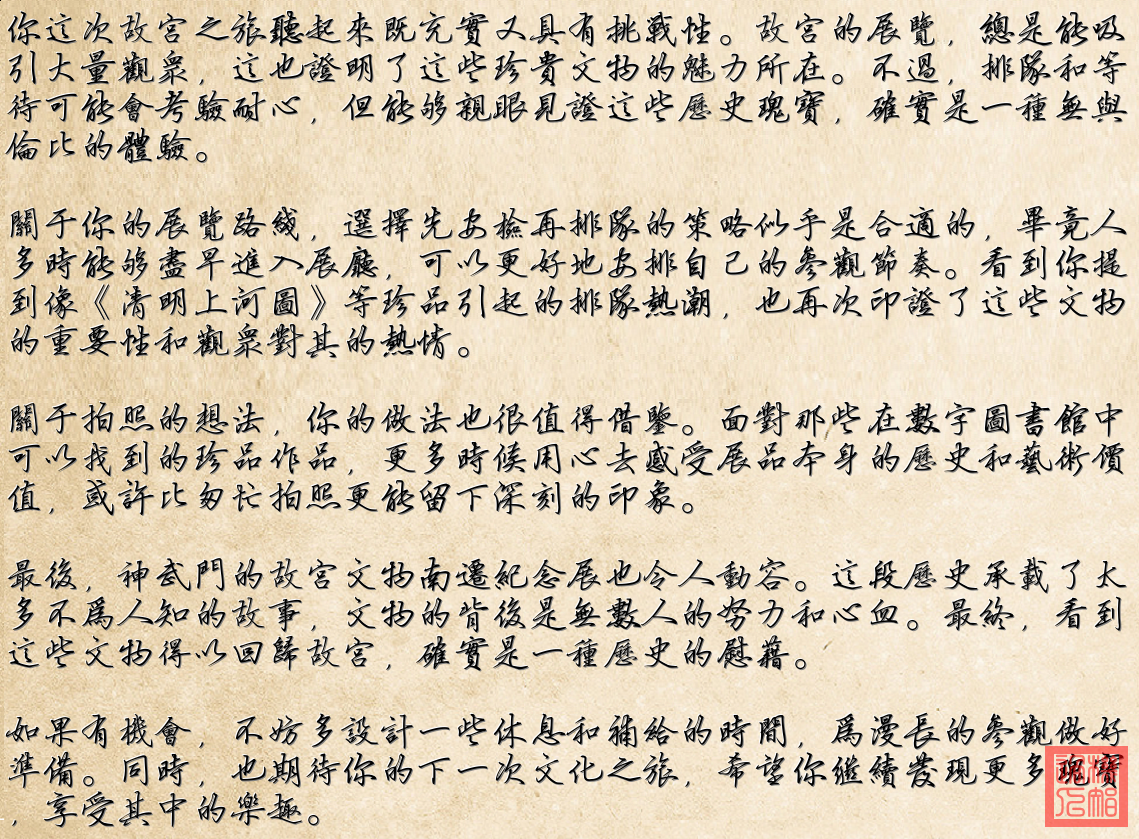 你這次故宮之旅聽起來既充實又具有挑戰性。故宮的展覽，總是能吸
引大量觀衆，這也證明了這些珍貴文物的魅力所在。不過，排隊和等
待可能會考驗耐心，但能够親眼見證這些歷史瑰寶，確實是一種無與
倫比的體驗。
關于你的展覽路綫，選擇先安檢再排隊的策略似乎是合適的，畢竟人
多時能够盡早進入展廳，可以更好地安排自己的參觀節奏。看到你提
到像《清明上河圖》等珍品引起的排隊熱潮，也再次印證了這些文物
的重要性和觀衆對其的熱情。
關于拍照的想法，你的做法也很值得借鑒。面對那些在數字圖書館中
可以找到的珍品作品，更多時候用心去感受展品本身的歷史和藝術價
值，或許比匆忙拍照更能留下深刻的印象。
最後，神武門的故宮文物南遷紀念展也令人動容。這段歷史承載了太
多不爲人知的故事，文物的背後是無數人的努力和心血。最終，看到
這些文物得以回歸故宮，確實是一種歷史的慰藉。
如果有機會，不妨多設計一些休息和補給的時間，爲漫長的參觀做好
準備。同時，也期待你的下一次文化之旅，希望你繼續發現更多瑰寶
，享受其中的樂趣。